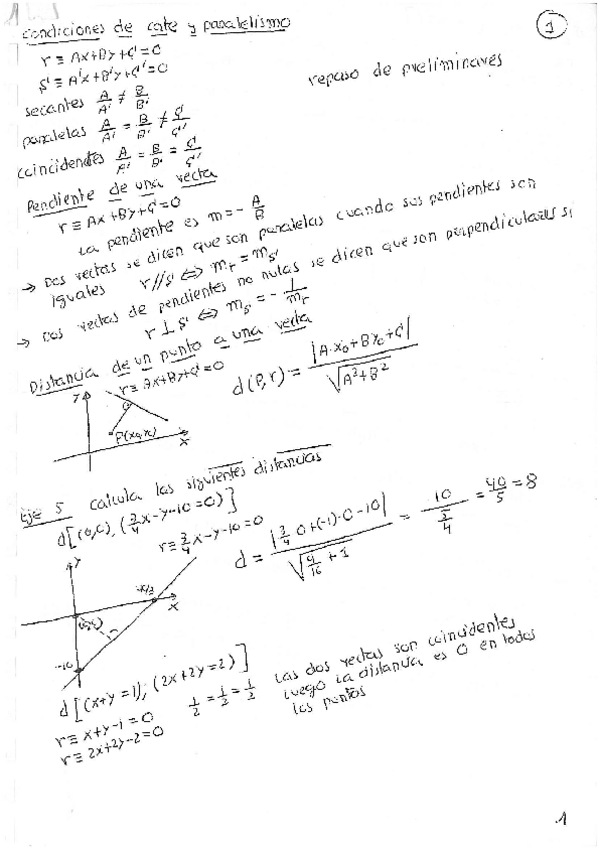 condiciones de corte y paralelismo
1
r ≡ Ax+By+C=0
s ≡ A'x+B'y+C'=0
repaso de preliminares
secantes A/A' ≠ B/B'
paralelas A/A' = B/B' ≠ C/C'
coincidentes A/A' = B/B' = C/C'
Pendiente de una recta
r ≡ Ax+By+C=0
La pendiente es m = - A/B
→ Dos rectas se dicen que son paralelas cuando sus pendientes son
iguales r//s ⇔ m_r = m_s
→ Dos rectas de pendientes no nulas se dicen que son perpendiculares si
r ⊥ s ⇔ m_s = - 1/m_r
Distancia de un punto a una recta
r ≡ Ax+By+C=0
d(P,r) = |A·x₀+By₀+C| / √(A²+B²)
y
P(x₀,y₀)
x
Eje 5 calcula las siguientes distancias
d[(0,0), (3/4x-y-10=0)]
r ≡ 3/4x-y-10=0
d = |3/4·0+(-1)·0-10| / √(9/16+1) = 10 / (5/4) = 40/5 = 8
y
40/3
x
(0,0)
-10
d[(x+y=1); (2x+2y=2)]
r ≡ x+y-1=0
r ≡ 2x+2y-2=0
1/2 = 1/2 = 1/2
Las dos rectas son coincidentes
luego la distancia es 0 en todos
los puntos
1